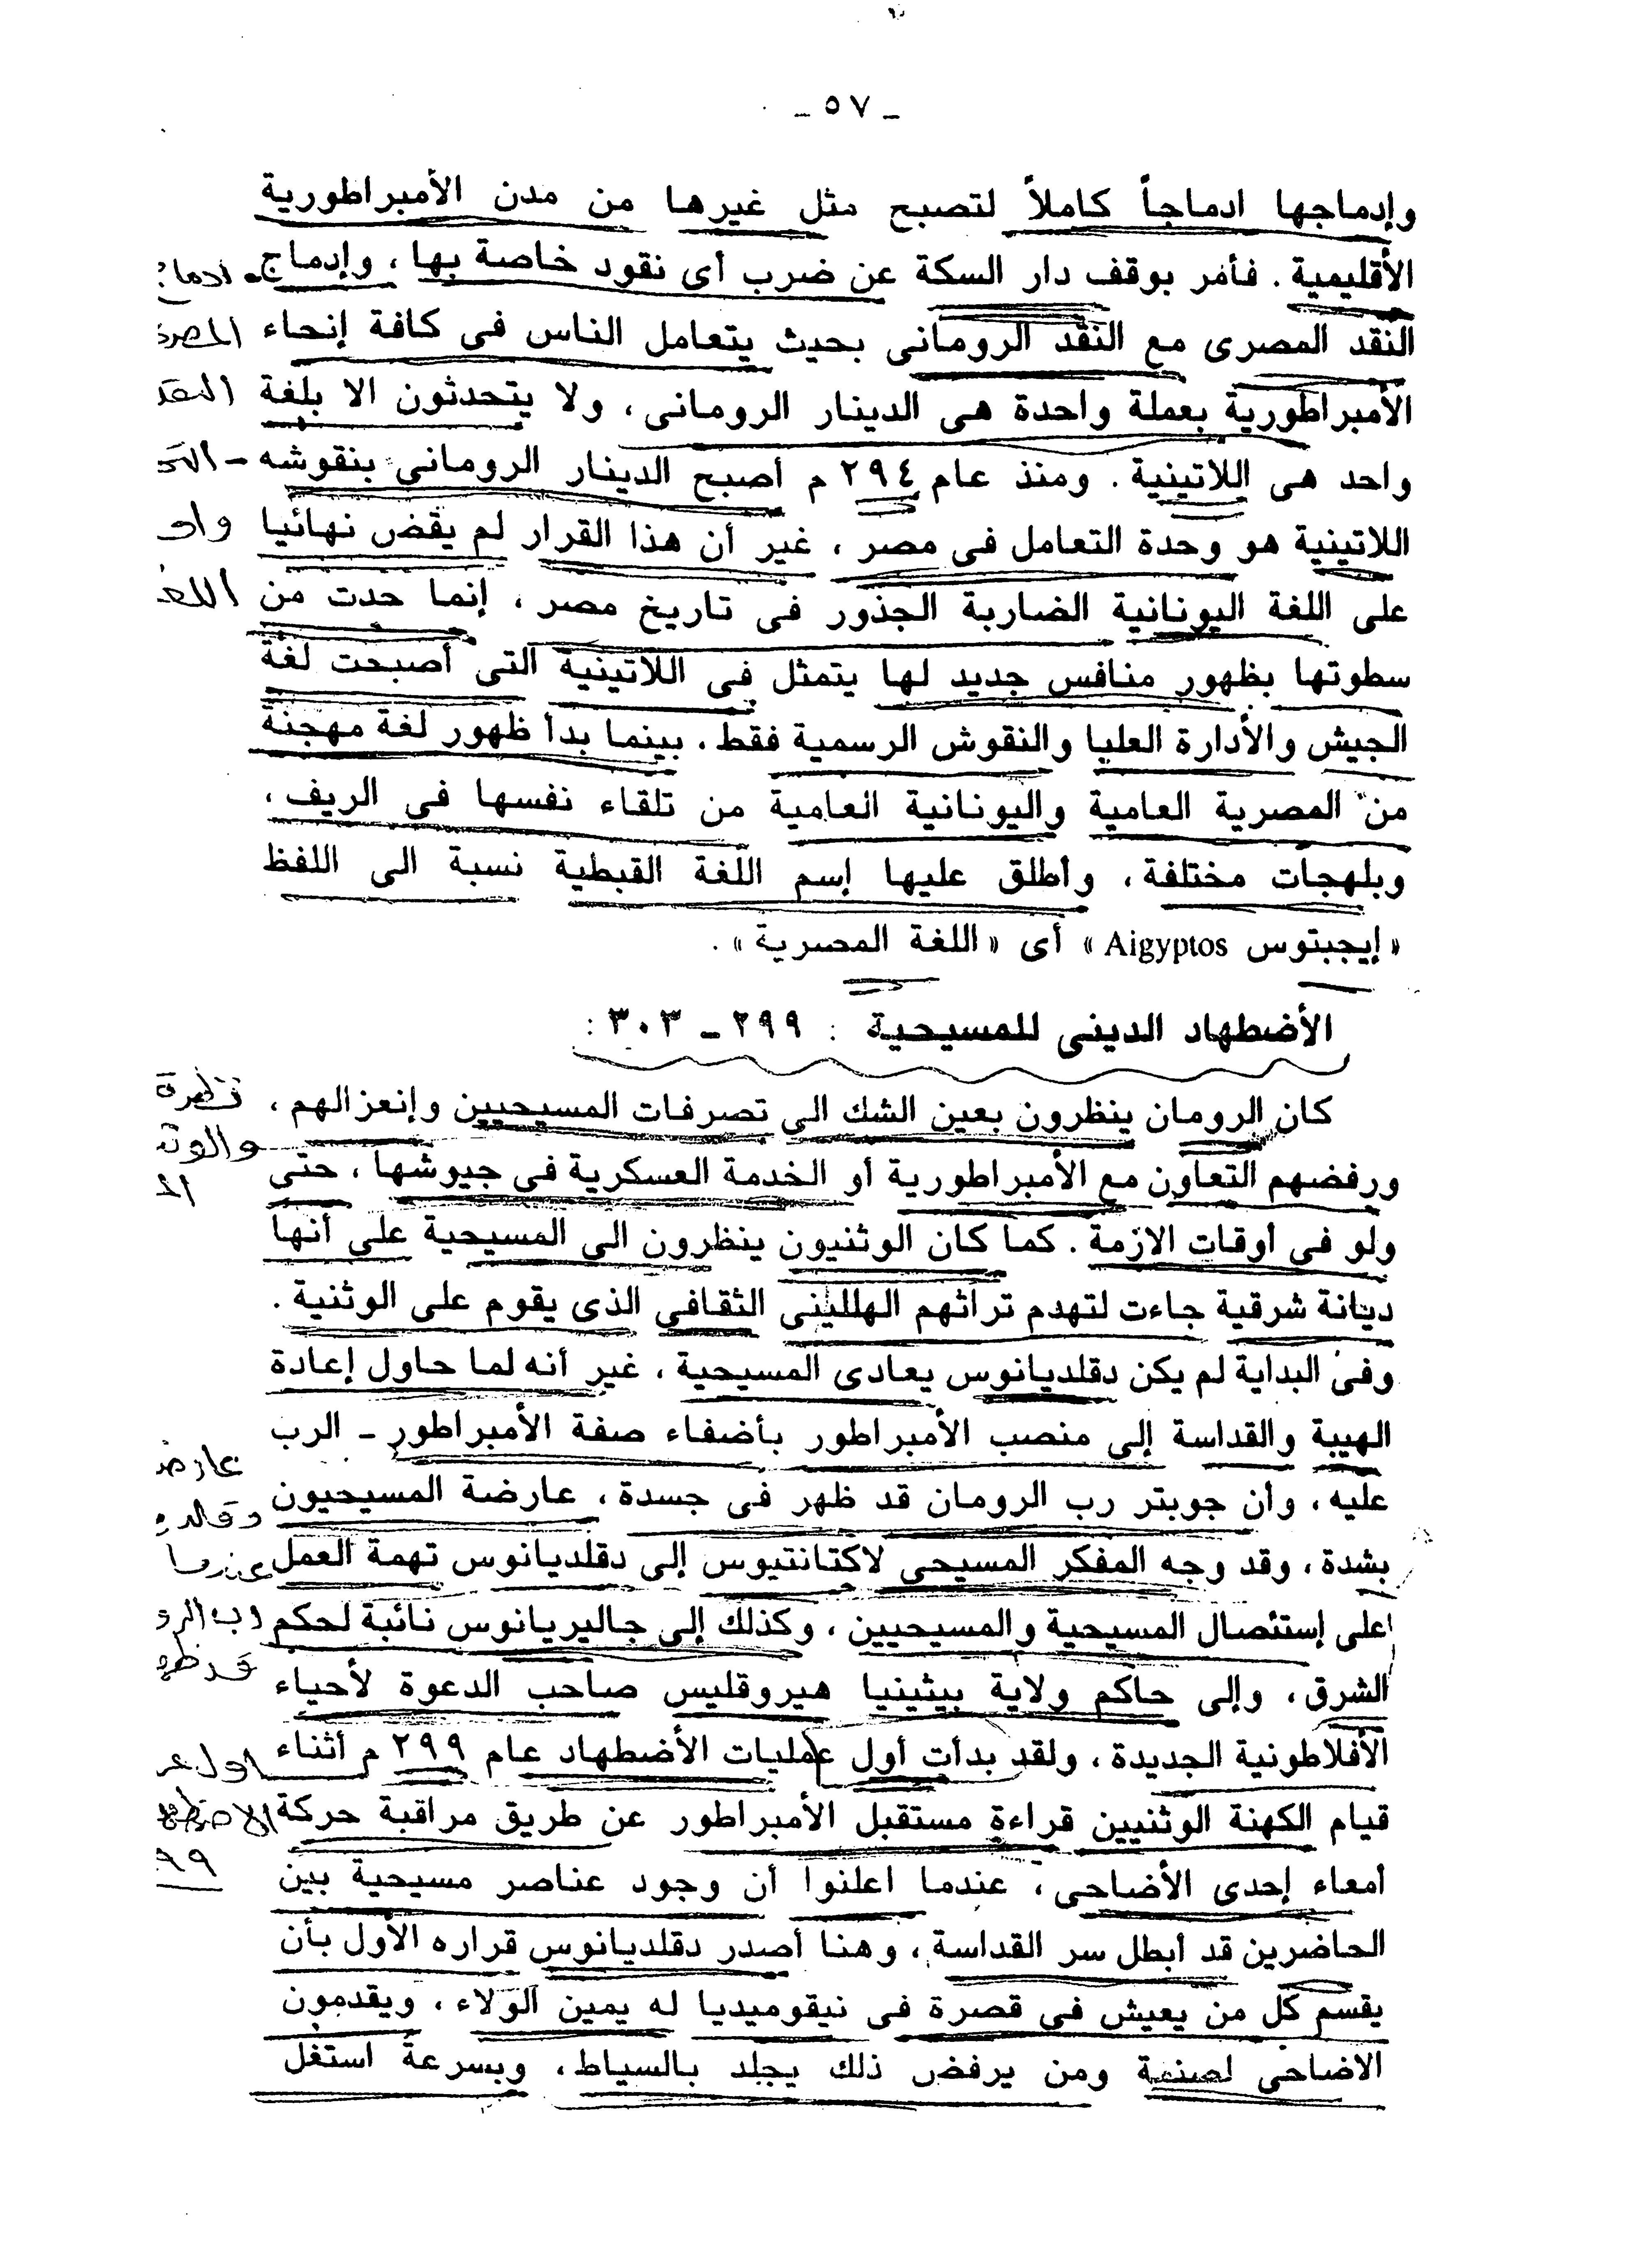 ـ ٥٧ ـ
وإدماجها ادماجاً كاملاً لتصبح مثل غيرها من مدن الأمبراطورية
الأقليمية . فأمر بوقف دار السكة عن ضرب أى نقود خاصة بها ، وإدماج
النقد المصرى مع النقد الرومانى بحيث يتعامل الناس فى كافة إنحاء
الأمبراطورية بعملة واحدة هى الدينار الرومانى ، ولا يتحدثون الا بلغة
واحد هى اللاتينية . ومنذ عام ٢٩٤ م أصبح الدينار الرومانى بنقوشه
اللاتينية هو وحدة التعامل فى مصر ، غير أن هذا القرار لم يقض نهائيا
على اللغة اليونانية الضاربة الجذور فى تاريخ مصر ، إنما حدت من
سطوتها بظهور منافس جديد لها يتمثل فى اللاتينية التى أصبحت لغة
الجيش والأدارة العليا والنقوش الرسمية فقط ، بينما بدأ ظهور لغة مهجنة
من المصرية العامية واليونانية العامية من تلقاء نفسها فى الريف ،
وبلهجات مختلفة ، وأطلق عليها إسم اللغة القبطية نسبة الى اللفظ
« إيجبتوس Aigyptos » أى « اللغة المصرية » .
الأضطهاد الدينى للمسيحية : ٢٩٩ ـ ٣٠٣ :
كان الرومان ينظرون بعين الشك الى تصرفات المسيحيين وإنعزالهم ،
ورفضهم التعاون مع الأمبراطورية أو الخدمة العسكرية فى جيوشها ، حتى
ولو فى أوقات الازمة . كما كان الوثنيون ينظرون الى المسيحية على أنها
ديانة شرقية جاءت لتهدم تراثهم الهللينى الثقافى الذى يقوم على الوثنية .
وفى البداية لم يكن دقلديانوس يعادى المسيحية ، غير أنه لما حاول إعادة
الهيبة والقداسة إلى منصب الأمبراطور بأضفاء صفة الأمبراطور ـ الرب
عليه ، وأن جوبتر رب الرومان قد ظهر فى جسدة ، عارضة المسيحيون
بشدة ، وقد وجه المفكر المسيحى لاكتانتيوس إلى دقلديانوس تهمة العمل
على إستئصال المسيحية والمسيحيين ، وكذلك إلى جاليريانوس نائبة لحكم
الشرق ، وإلى حاكم ولاية بيثينيا هيروقليس صاحب الدعوة لأحياء
الأفلاطونية الجديدة ، ولقد بدأت أول عمليات الأضطهاد عام ٢٩٩ م أثناء
قيام الكهنة الوثنيين قراءة مستقبل الأمبراطور عن طريق مراقبة حركة
أمعاء إحدى الأضاحى ، عندما اعلنوا أن وجود عناصر مسيحية بين
الحاضرين قد أبطل سر القداسة ، وهنا أصدر دقلديانوس قراره الأول بأن
يقسم كل من يعيش فى قصرة فى نيقوميديا له يمين الولاء ، ويقدمون
الاضاحى لصنمة ومن يرفض ذلك يجلد بالسياط ، وبسرعة استغل